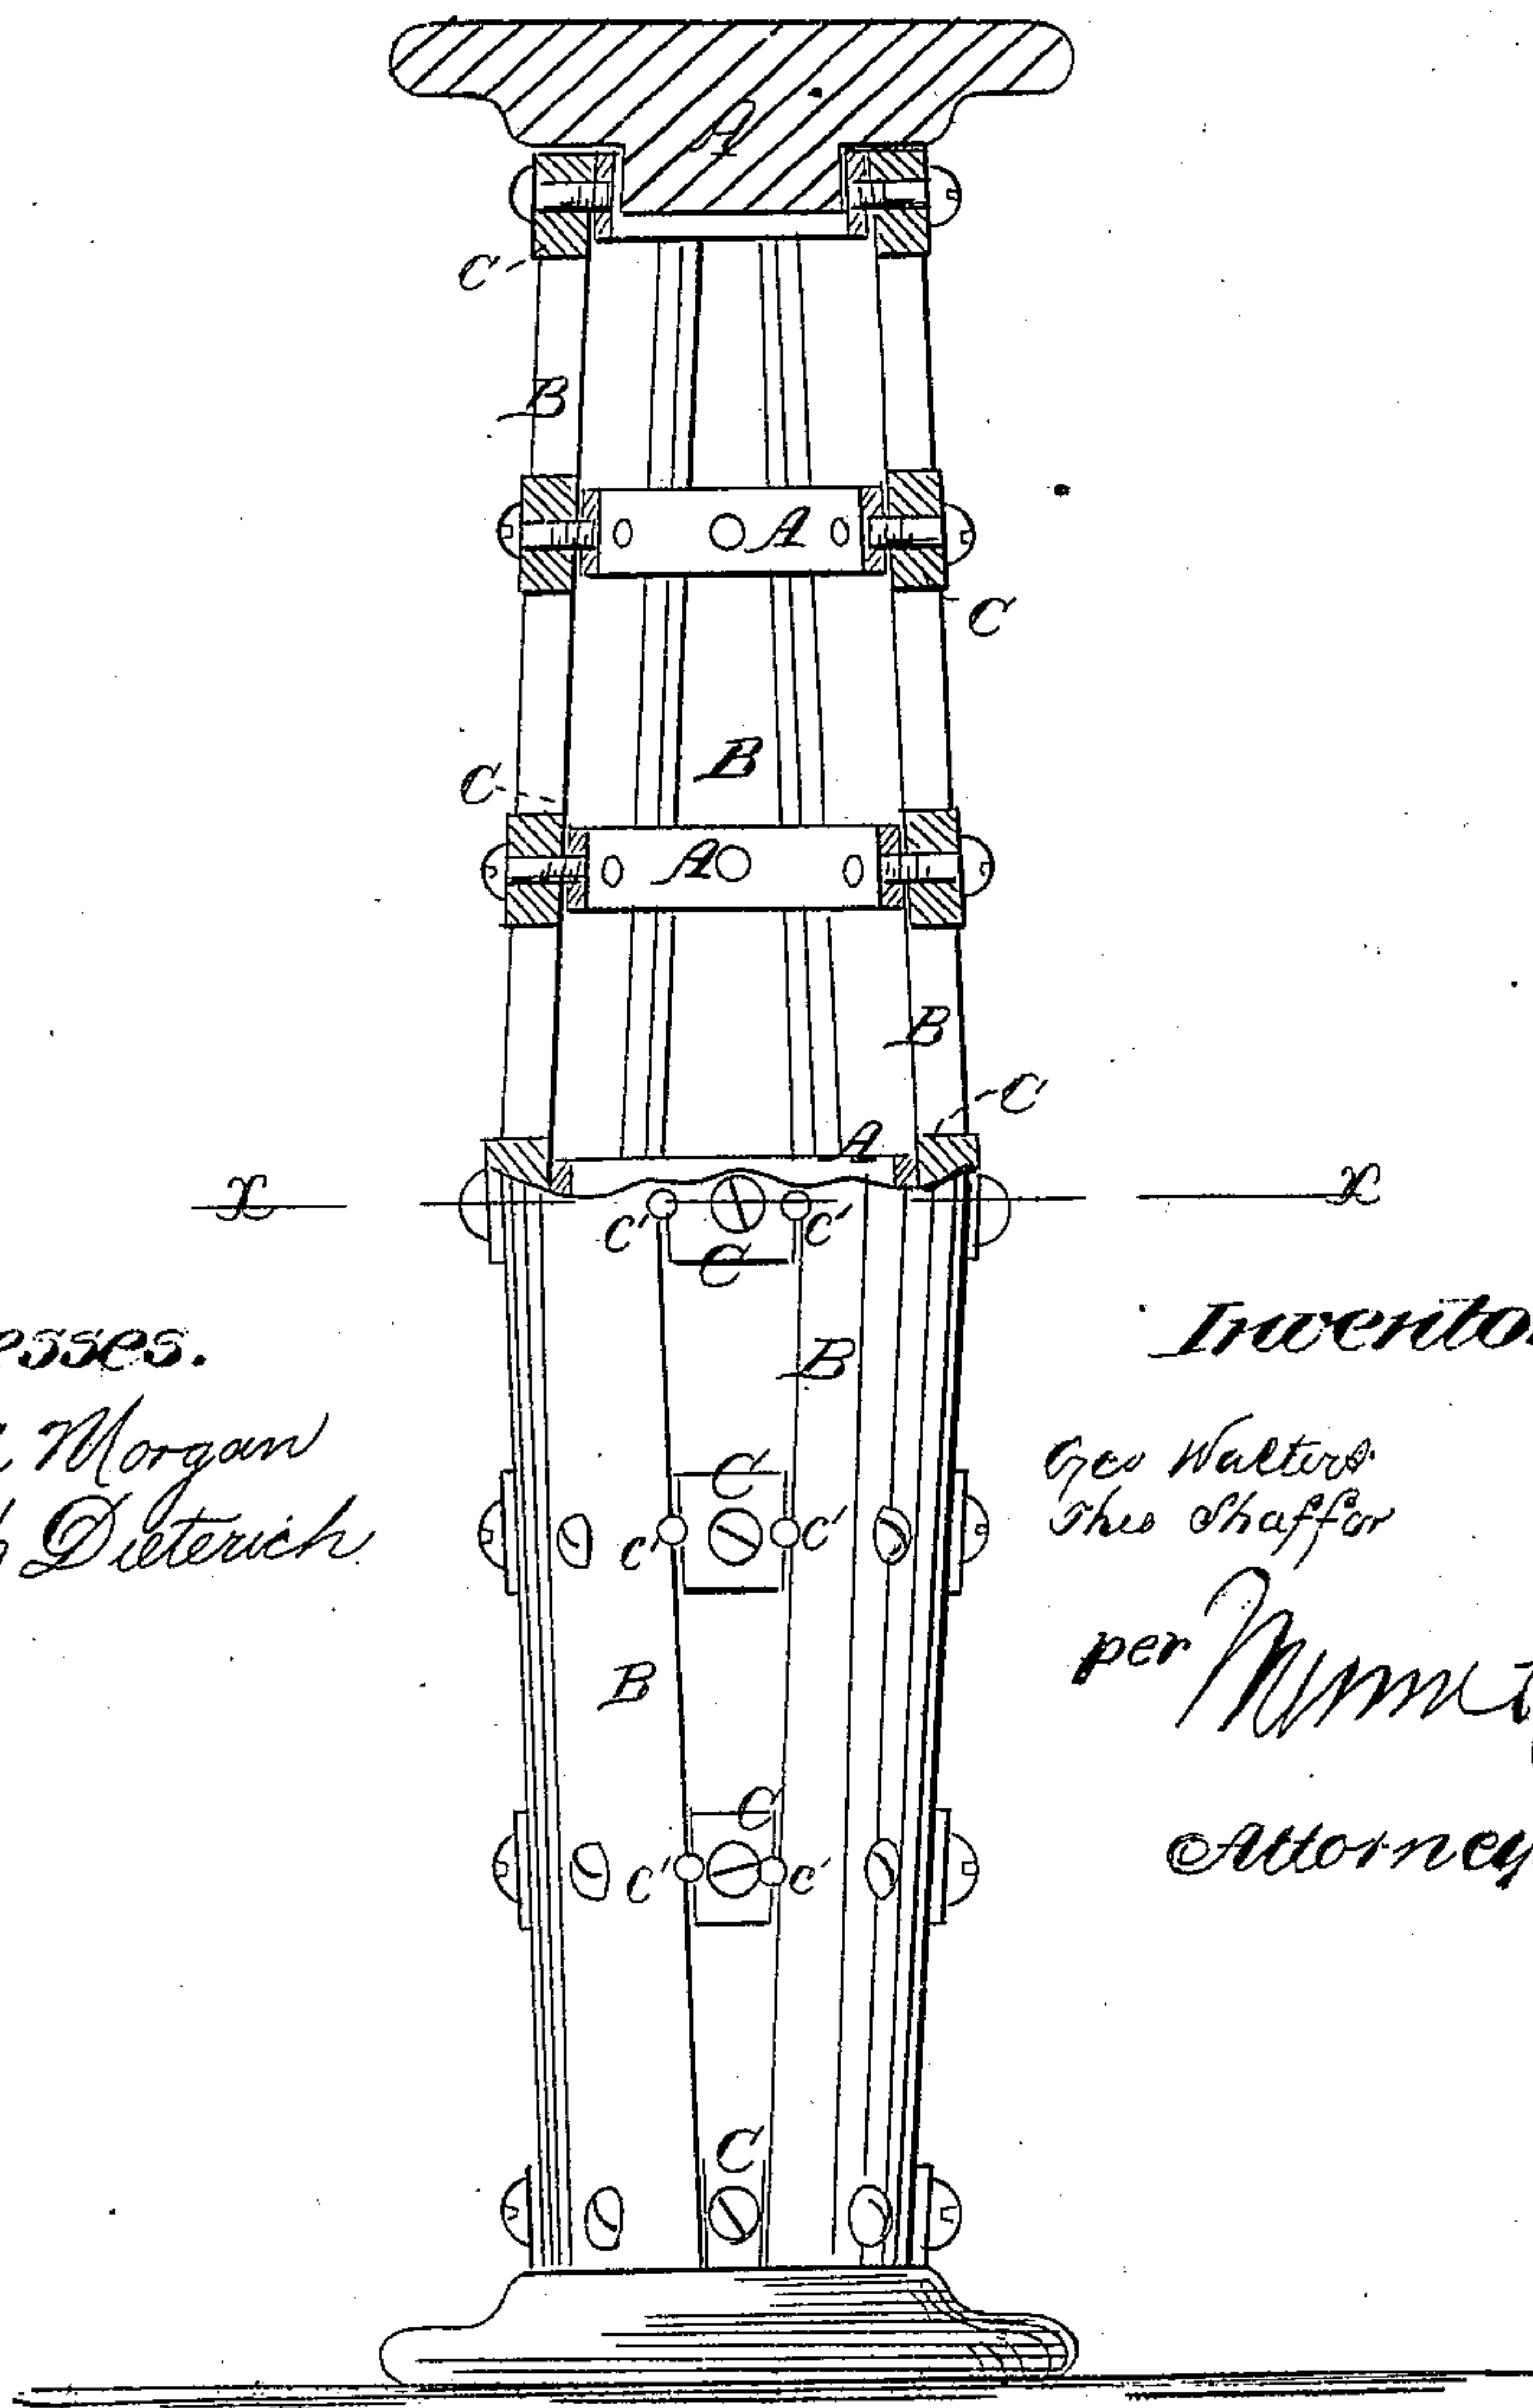 A
C
B
A
C
B
C
A
B
C
A
x x
C' C C'
B
esses.
Morgan
Dieterich
Inventor
Geo Walters
Theo Shaffer
per Munn &
Attorney
C
C' C'
B
C
C' C'
C